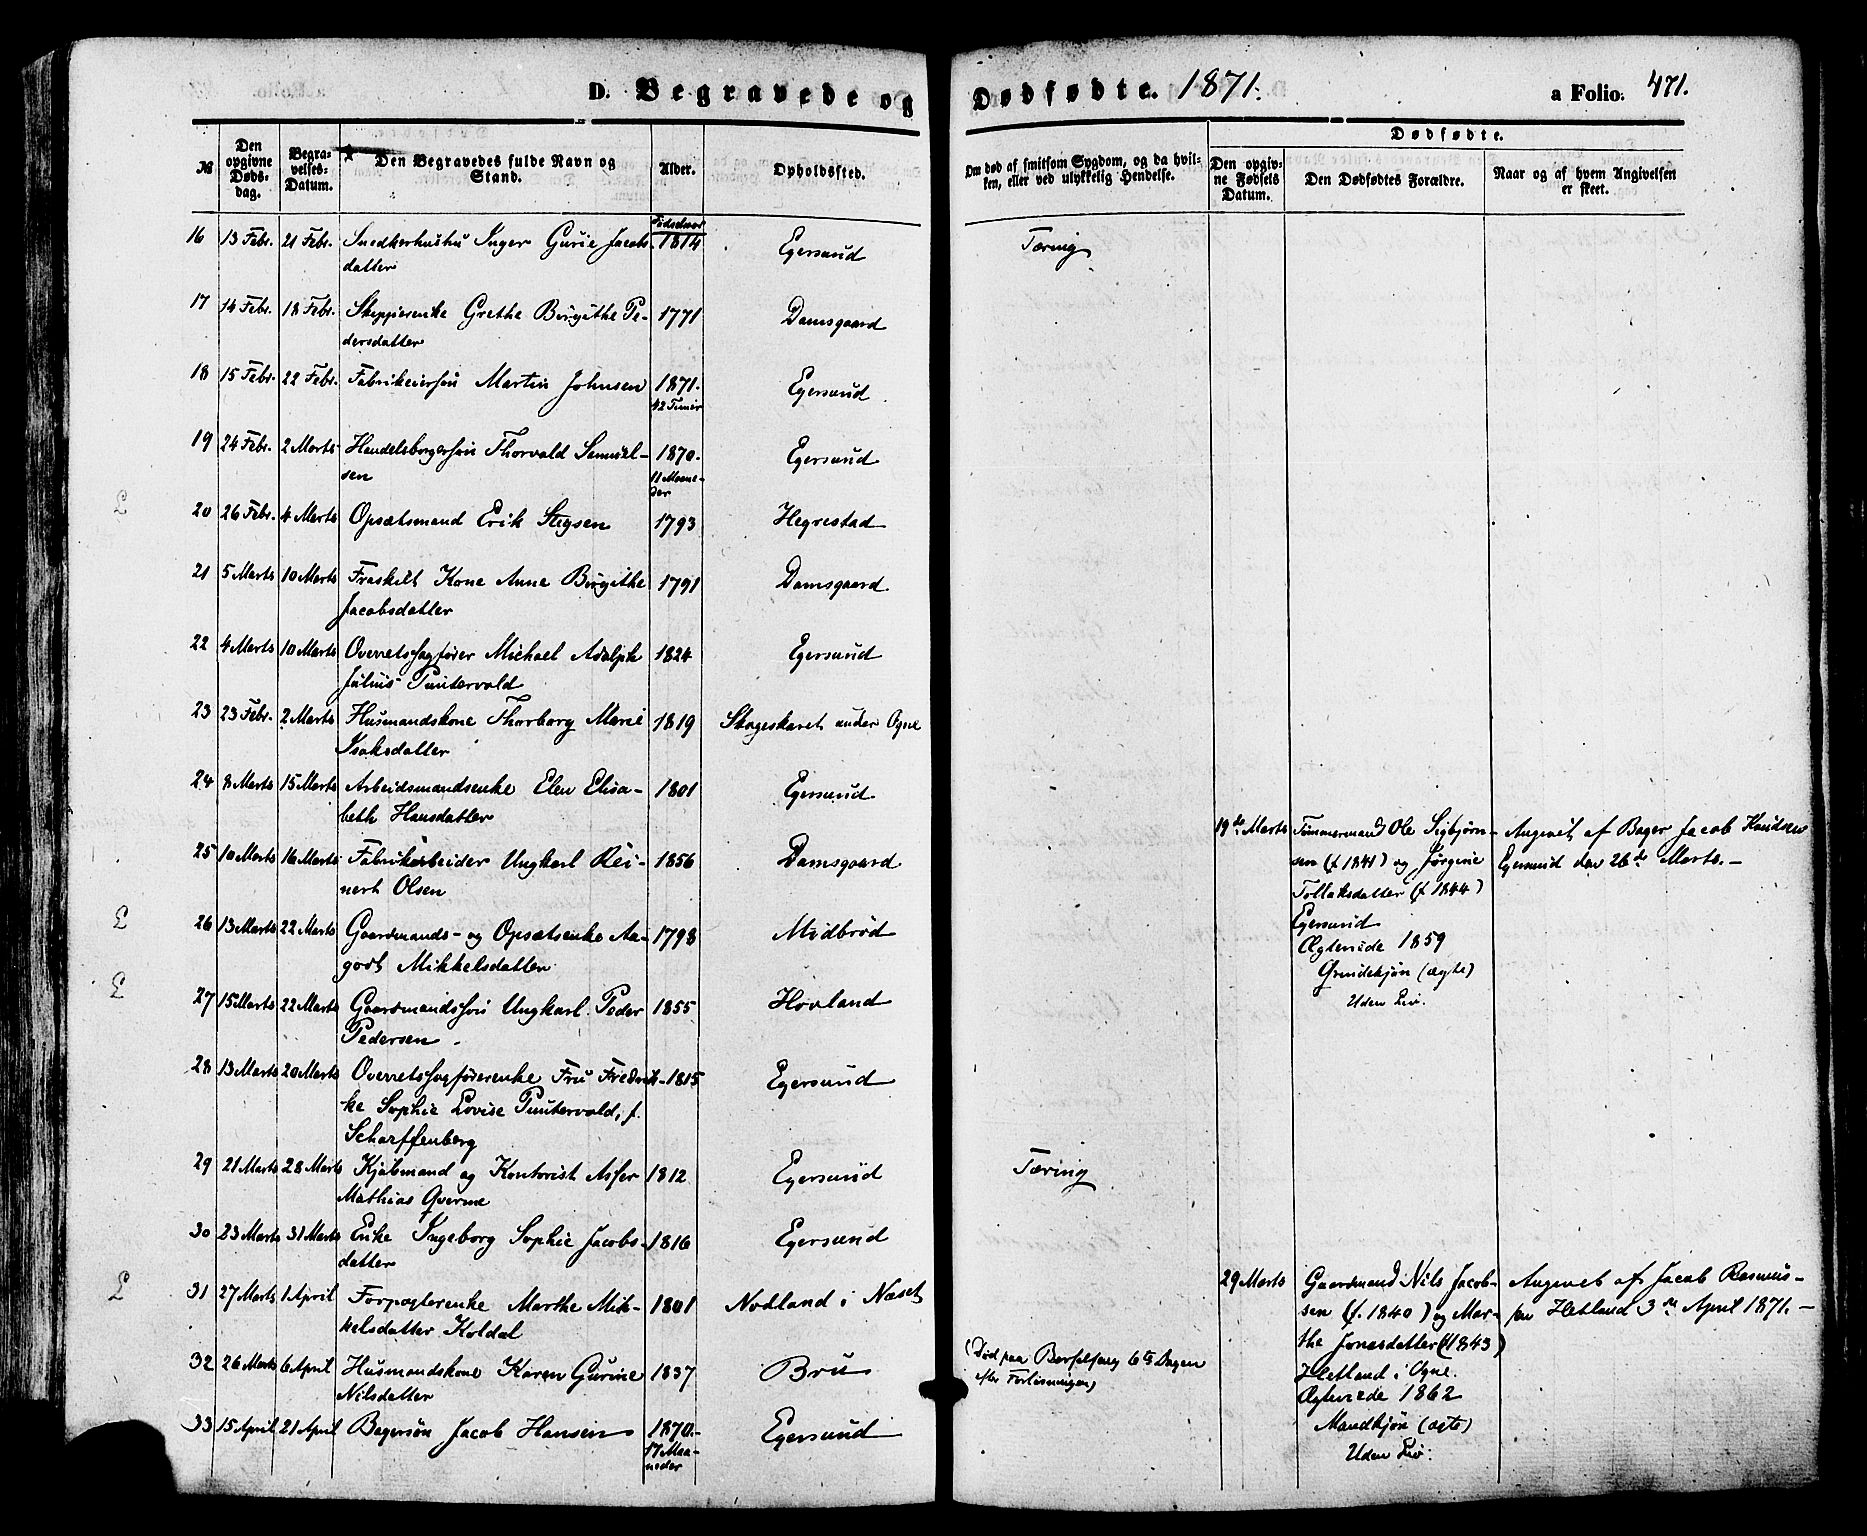 D. Begravede og
Dødfødte. 1871.
a Folio. 471.
№
Den opgivne Døds-dag.
Begra-velses-Datum.
Den Begravedes fulde Navn og Stand.
Alder.
Opholdssted.
Om død af smitsom Sygdom, og da hvil-
ken, eller ved ulykkelig Hendelse.
Dødfødte.
Den opgiv-ne Fødsels Datum.
Den Dødfødtes Forældre.
Naar og af hvem Angivelsen er skeet.
Fødselsaar
16 13 Febr. 21 Febr. Snedkerhustru Inger Gurie Jacobs- 1814 Egersund Tæring
datter
17 14 Febr. 18 Febr. Skipperenke Grethe Birgithe Pe- 1771 Damsgaard
dersdatter
18 15 Febr. 22 Febr. Fabrikeiersøn Martin Johnsen 1871. Egersund
42 Timer
19 24 Febr. 2 Marts Handelsborgersøn Thorvald Samuel- 1870. Egersund
sen 11 Maane-
der
20 26 Febr. 4 Marts Opsætsmand Erik Stegsen 1793 Hegrestad
21 5 Marts 10 Marts Fraskilt Kone Anne Birgithe 1791 Damsgaard
Jacobsdatter
22 4 Marts 10 Marts Overretssagfører Michael Adolph 1824 Egersund
Julius Puntervold
23 23 Febr. 2 Marts Husmandskone Thorborg Marie 1819 Skageskaret under Ogne
Isaksdatter
24 8 Marts 15 Marts Arbeidsmandsenke Elen Elisa- 1801 Egersund
beth Hansdatter
25 10 Marts 16 Marts Fabrikarbeider Ungkarl Rei- 1856 Damsgaard
nert Olsen
26 13 Marts 22 Marts Gaardmands- og Opsætsenke Aa- 1798 Midbrød
godt Mikkelsdatter
27 15 Marts 22 Marts Gaardmandssøn Ungkarl Peder 1855 Hovland
Pedersen
28 13 Marts 20 Marts Overretssagførerenke Fru Fredrik- 1815 Egersund
ke Sophie Lovise Puntervold, f.
Scharffenberg
29 21 Marts 28 Marts Kjøbmand og Kontorist Asser 1812 Egersund Tæring
Mathias Qverme
30 23 Marts 31 Marts Enke Ingeborg Sophie Jacobs- 1816 Egersund
datter
31 27 Marts 1 April Forpagterenke Marthe Mik- 1801 Nodland i Næset
kelsdatter Koldal
32 26 Marts 6 April Husmandskone Karen Gurine 1837 Bru (Død paa Barselseng 6te Dagen
Nilsdatter efter Forløsningen)
33 15 April 21 April Bagersøn Jacob Hansen 1870. Egersund
17 Maa-
neder
19de Marts Tømmermand Ole Sigbjørn- Angivet af Bager Jacob Knudsen
sen (f. 1841) og Jørgine Egersund den 26de Marts.
Tollaksdatter (f. 1844)
Egersund
Ægteviede 1859
Qvindekjøn (ægte)
Uden Liv.
29 Marts Gaardmand Nils Jacob- Angivet af Jacob Rasmus-
sen (f. 1840) og Mar- sen Hetland 3die April 1871.
the Jonasdatter (1843)
Hetland i Ogne.
Ægteviede 1862
Mandkjøn (ægte)
Uden Liv.